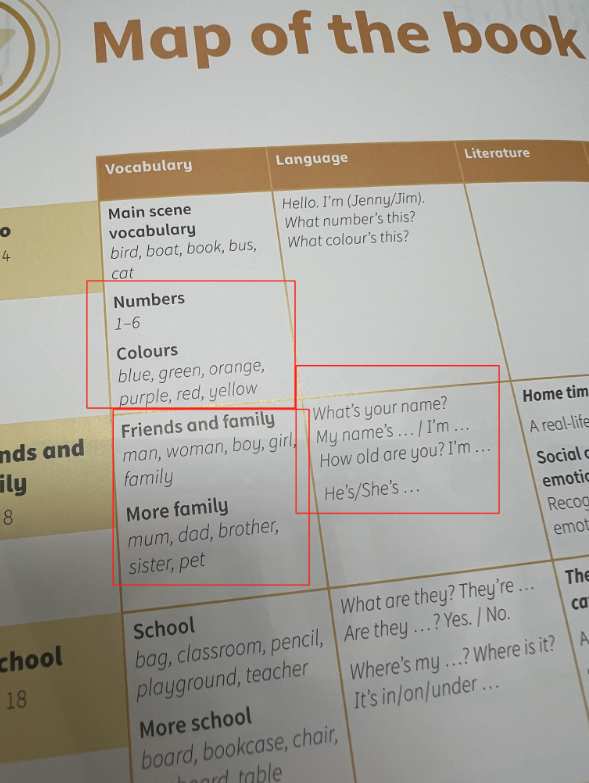 Map of the book
Vocabulary
Language
Literature
4
Main scene
vocabulary
bird, boat, book, bus,
cat
Numbers
1–6
Colours
blue, green, orange,
purple, red, yellow
Hello. I'm (Jenny/Jim).
What number's this?
What colour's this?
nds and
ily
8
Friends and family
man, woman, boy, girl,
family
More family
mum, dad, brother,
sister, pet
What's your name?
My name's … / I'm …
How old are you? I'm …
He's/She's …
Home tim
A real-life
Social
emotic
Recog
emot
chool
18
School
bag, classroom, pencil,
playground, teacher
More school
board, bookcase, chair,
table
What are they? They're …
Are they …? Yes. / No.
Where's my …? Where is it?
It's in/on/under …
The
ca
A